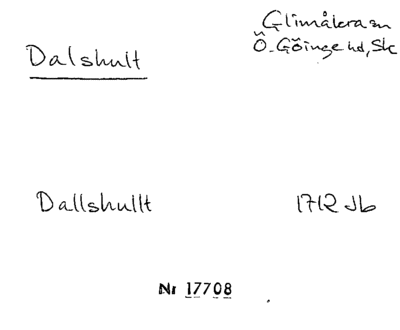 Dalshult
Glimåkra sn
Ö. Göinge hd, Sk
Dallshullt 1712 Jb
Nr 17708